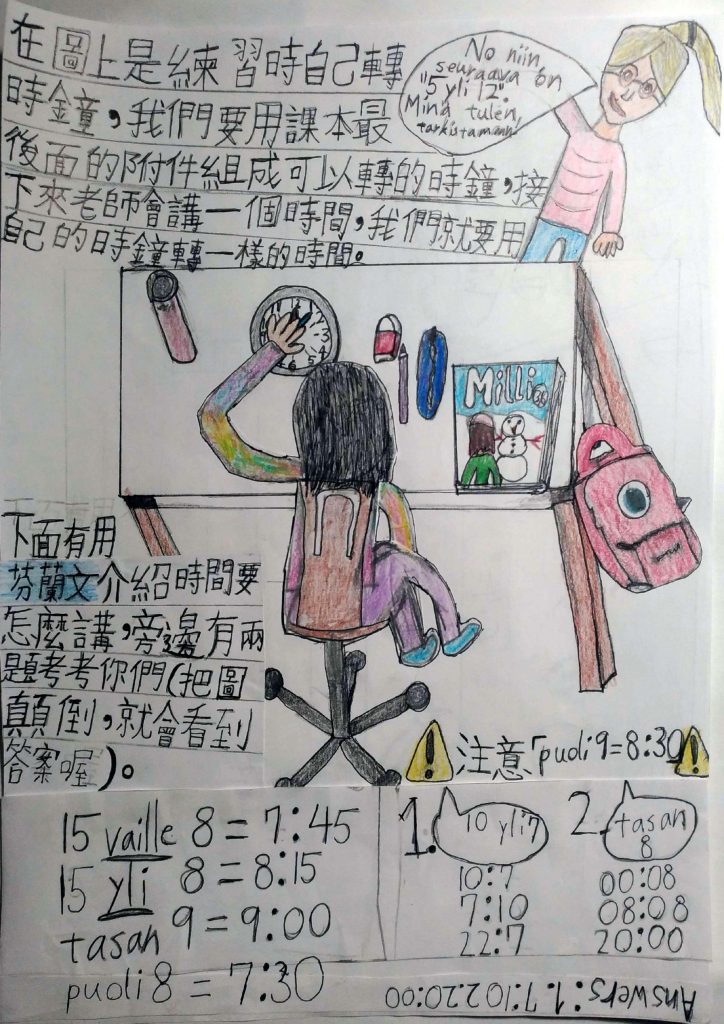 在圖上是練習時自己轉
時鐘,我們要用課本最
後面的附件組成可以轉的時鐘,接
下來老師會講一個時間,我們就要用
自己的時鐘轉一樣的時間。
No niin,
seuraava on
"5 yli 12".
Minä tulen,
tarkistamaan
Milli
下面有用
芬蘭文介紹時間要
怎麼講,旁邊有兩
題考考你們(把圖
顛倒,就會看到
答案喔)。
注意「puoli9=8:30
15 vaille 8=7:45
15 yli 8=8:15
tasan 9=9:00
puoli8=7:30
1. 10 yli7
10:7
7:10
22:7
2. tasan
8
00:08
08:08
20:00
Answers:1.7:10 2.20:00